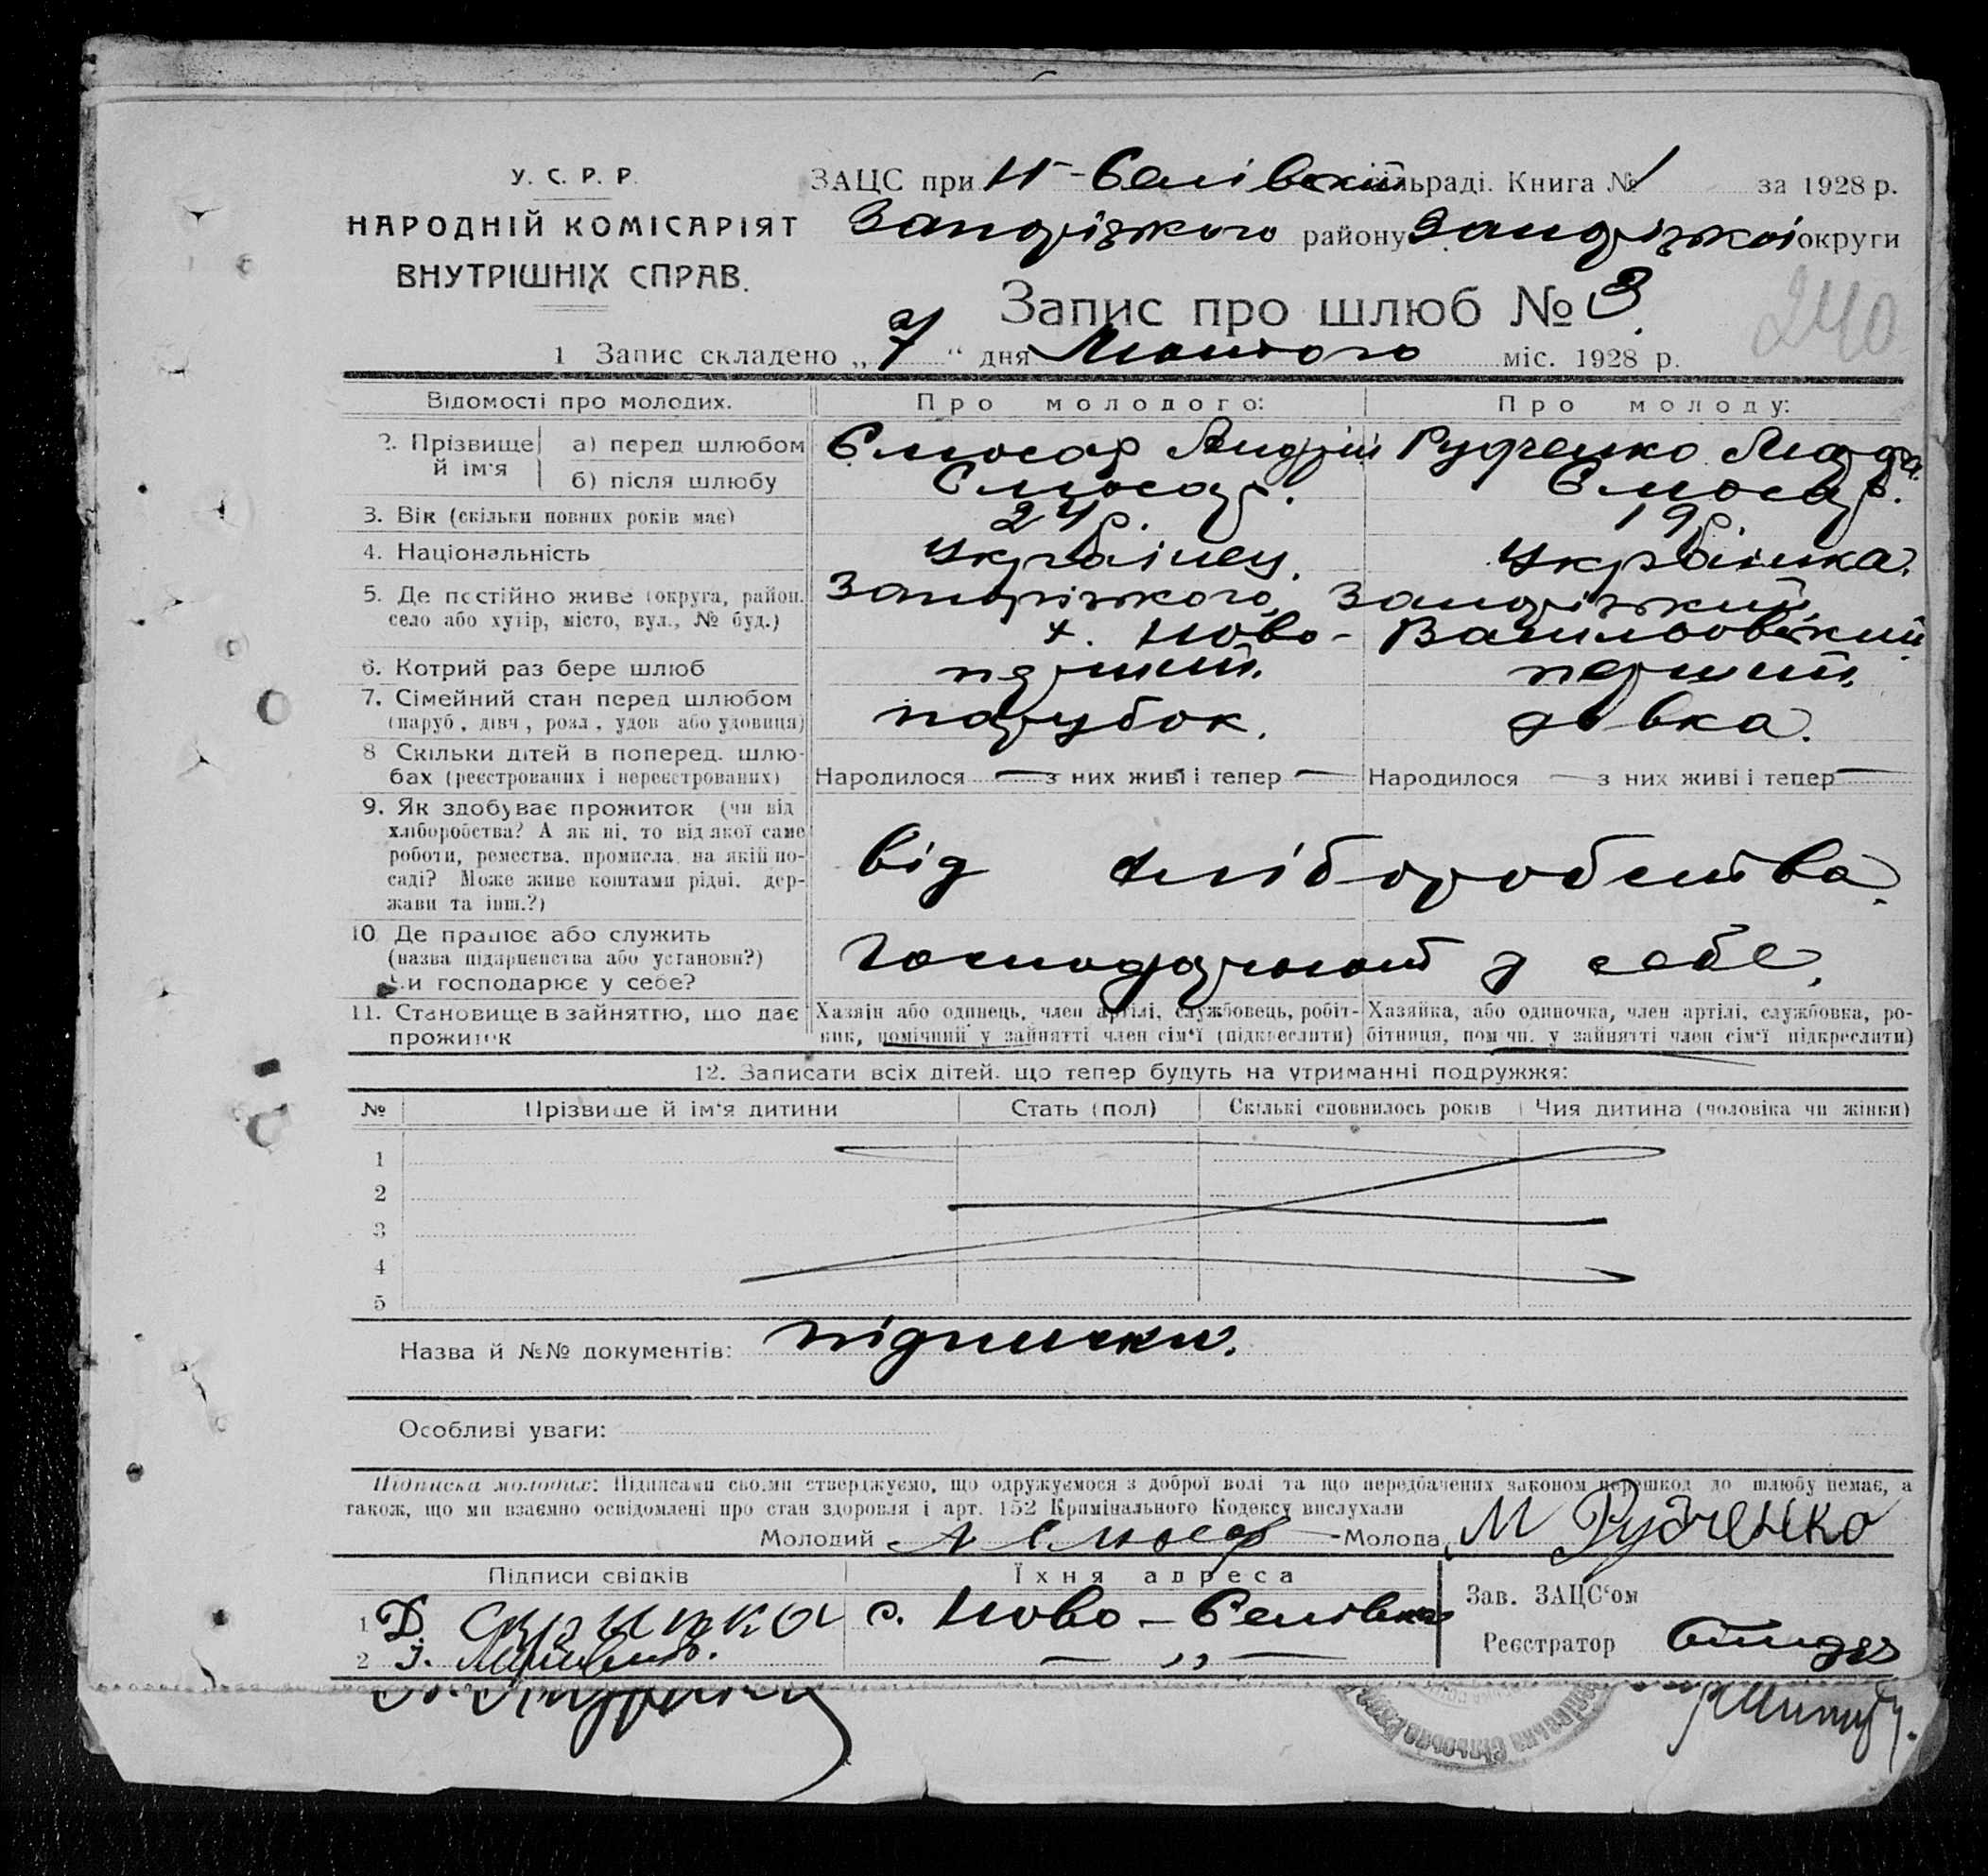 У. С. Р. Р.
НАРОДНІЙ КОМІСАРІЯТ
ВНУТРІШНІХ СПРАВ.
ЗАЦС при Н-Селівській сільраді. Книга № 1 за 1928 р.
Запорізького району Запорізької округи
Запис про шлюб № 3
240
1 Запис складено „7“ дня Лютого міс. 1928 р.
Відомості про молодих. Про молодого: Про молоду:
2. Прізвище й ім'я а) перед шлюбом Слюсар Андрій Рудченко
б) після шлюбу Слюсар. Слюсар.
3. Вік (скільки повних років має) 24 р. 19 р.
4. Національність Українець. Українка.
5. Де постійно живе (округа, район, Запорізького, Запорізький,
село або хутір, місто, вул., № буд.) х. Ново- Васильовський
6. Котрий раз бере шлюб перший. перший.
7. Сімейний стан перед шлюбом
(паруб, дівч, розл, удов або удовиця) парубок. дівка.
8 Скільки дітей в поперед. шлю-
бах (реєстрованих і нереєстрованих) Народилося — з них живі і тепер — Народилося — з них живі і тепер —
9. Як здобуває прожиток (чи від
хліборобства? А як ні, то від якої саме
роботи, ремества, промисла, на якій по-
саді? Може живе коштами рідні, дер-
жави та інш.?) від хліборобства.
10 Де працює або служить
(назва підприємства або установи?)
Чи господарює у себе? Господарюють у себе.
11. Становище в зайняттю, що дає
прожиток
Хазяїн або одинець, член артілі, службовець, робіт-
ник, помічний у зайнятті член сім'ї (підкреслити)
Хазяйка, або одиночка, член артілі, службовка, ро-
бітниця, пом чн. у зайнятті член сім'ї підкреслити)
12. Записати всіх дітей. що тепер будуть на утриманні подружжя:
№ Прізвише й ім'я дитини Стать (пол) Скількі сповнилось років Чия дитина (чоловіка чи жінки)
1
2
3
4
5
Назва й №№ документів: підписки.
Особливі уваги:
Підписка молодих: Підписами своїми стверджуємо, що одружуємося з доброї волі та що передбачених законом перешкод до шлюбу немає, а
також, що ми взаємно освідомлені про стан здоровля і арт. 152 Кримінального Кодексу вислухали
Молодий А Слюсар Молода М Рудченко
Підписи свідків Їхня адреса
Зав. ЗАЦС'ом
1 Д. с. Ново-Селівка
Реєстратор
2 І. — „ —